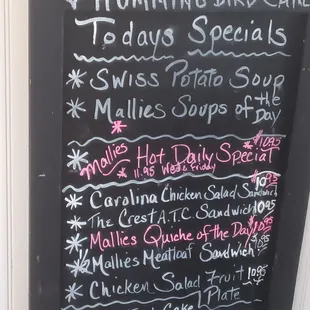 HUMMING BIRD CAKE
Todays Specials
Swiss Potato Soup
Mallies Soups of the Day
$10.95
Mallies Hot Daily Special
11.95 Weds & Friday
Carolina Chicken Salad Sandwich 10.95
The Crest A.T.C. Sandwich 10.95
Mallies Quiche of the Day $10.95
1/2 Mallies Meatloaf Sandwich $10.95
Chicken Salad Fruit Plate 10.95
Cake